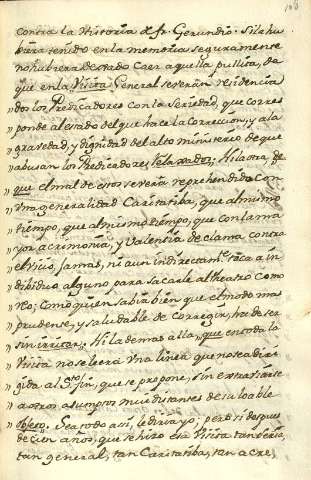 108
contra la Historia de fr. Gerundio. Si le hu
biera tenido en la memoria seguramente
no hubiera dexado caer aquella pullita, de
" que en la Visita General se verán residencia
" dos los Predicadores con la seriedad, que corres
" ponde al estado del que hace la Correccion, y a la
" gravedad, y dignidad del alto ministerio de que
" abusan los Predicadores relaxados: Ni la otra, de
" que el mal de estos se verá reprehendido con
" una generalidad Caritatiba, que al mismo
" tiempo, que al mismo tiempo, que con la ma
" yor acrimonia, y Valentia declama contra
" el Vicio, jamas, ni aun indirectamte. toca a in
" dibiduo alguno para sacarle al theatro como
" reo; Como quien sabia bien que el modo mas
" prudente, y saludable de corregir, ha de ser
" sin irritar. Ni la demas alla, que en toda la
" Visita no se leerá una linea que no sea diri
" gida al Sto. fin, que se propone, sin extraviarse
" a otros asumptos mui distantes de su loable
" objeto. Sea todo asi, le diria yo; pero si despues
de cien años, que se hizo esa Visita tan seria,
tan general, tan Caritatiba, tan acre,